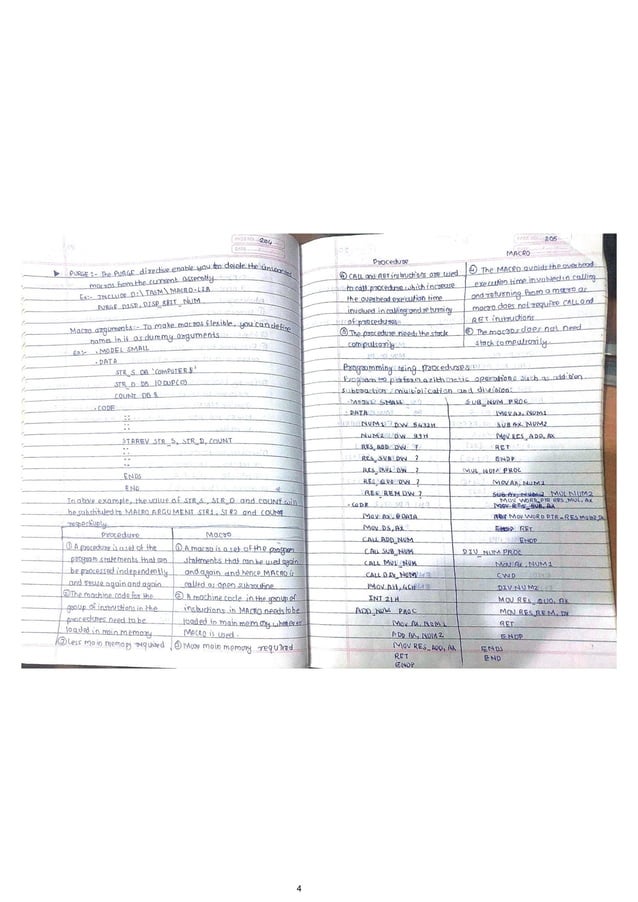 PAGE NO. 204
DATE
▶ PURGE :- The PURGE directive enable you to delete the unwanted
macros from the current assembly
Ex:- INCLUDE D:\TASM\MACRO.LIB
PURGE DISP, DISP_8BIT_NUM
Macro arguments :- To make macros flexible, you can define
names in it as dummy arguments
Ex:- .MODEL SMALL
.DATA
STR_S DB 'COMPUTER$'
STR_D DB 10 DUP(?)
COUNT DB 8
.CODE
::
::
STARREV STR_S, STR_D, COUNT
::
::
ENDS
END
In above example, the value of STR_S, STR_D and COUNT will
be substituted to MACRO ARGUMENT STR1, STR2 and COUNT
respectively
Procedure Macro
① A procedure is a set of the
program statements that can
be processed independently
and reuse again and again
② The machine code for the
group of instructions in the
procedures need to be
loaded in main memory
③ Less main memory required
① A macro is a set of the program
statements that can be used again
and again and hence MACRO is
called as open subroutine
② A machine code in the group of
instructions in MACRO needs to be
loaded to main memory whenever
MACRO is used.
③ More main memory required
PAGE NO. 205
Procedure MACRO
④ CALL and RET instructions are used
to call procedure which increase
the overhead execution time
involved in calling and returning
of procedures
⑤ The procedure needs the stack
compulsarily
④ The MACRO avoids the overhead
execution time involved in calling
and returning from a macro as
macro does not require CALL and
RET instructions
⑤ The macros does not need
stack compulsarily.
Programming using procedures
Program to perform arithmetic operations such as addition
subtraction, multiplication and division:
.MODEL SMALL
.DATA
NUM1 DW
NUM2 DW
RES_ADD DW ?
RES_SUB DW ?
RES_MUL DW ?
RES_QUO DW ?
RES_REM DW ?
.CODE
MOV AX, @DATA
MOV DS, AX
CALL ADD_NUM
CALL SUB_NUM
CALL MUL_NUM
CALL DIV_NUM
MOV AH, 4CH
INT 21H
ADD_NUM PROC
MOV AX, NUM1
ADD AX, NUM2
MOV RES_ADD, AX
RET
ENDP
SUB_NUM PROC
MOV AX, NUM1
SUB AX, NUM2
MOV RES_ADD, AX
RET
ENDP
MUL_NUM PROC
MOV AX, NUM1
SUB AX, NUM2 MUL NUM2
MOV WORD_PTR RES_MUL, AX
MOV RES_SUB, AX
RET MOV WORD PTR
ENDP RET
ENDP
DIV_NUM PROC
MOV AX, NUM1
CWD
DIV NUM2
MOV RES_QUO, AX
MOV RES_REM, DX
RET
ENDP
ENDS
END
4